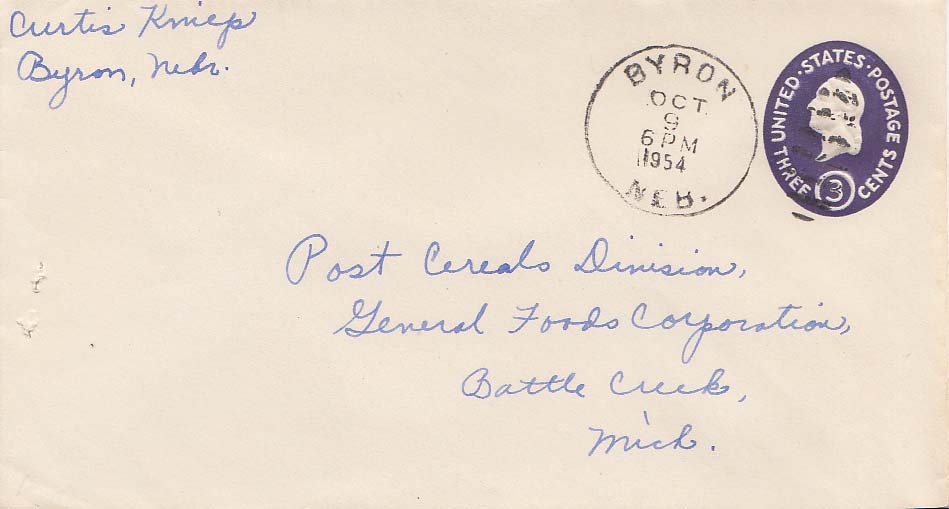 Curtis Kniep
Byron, Nebr.
BYRON
OCT
9
6 PM
1954
NEB.
UNITED·STATES·POSTAGE
THREE 3 CENTS
Post Cereals Division,
General Foods Corporation,
Battle Creek,
Mich.